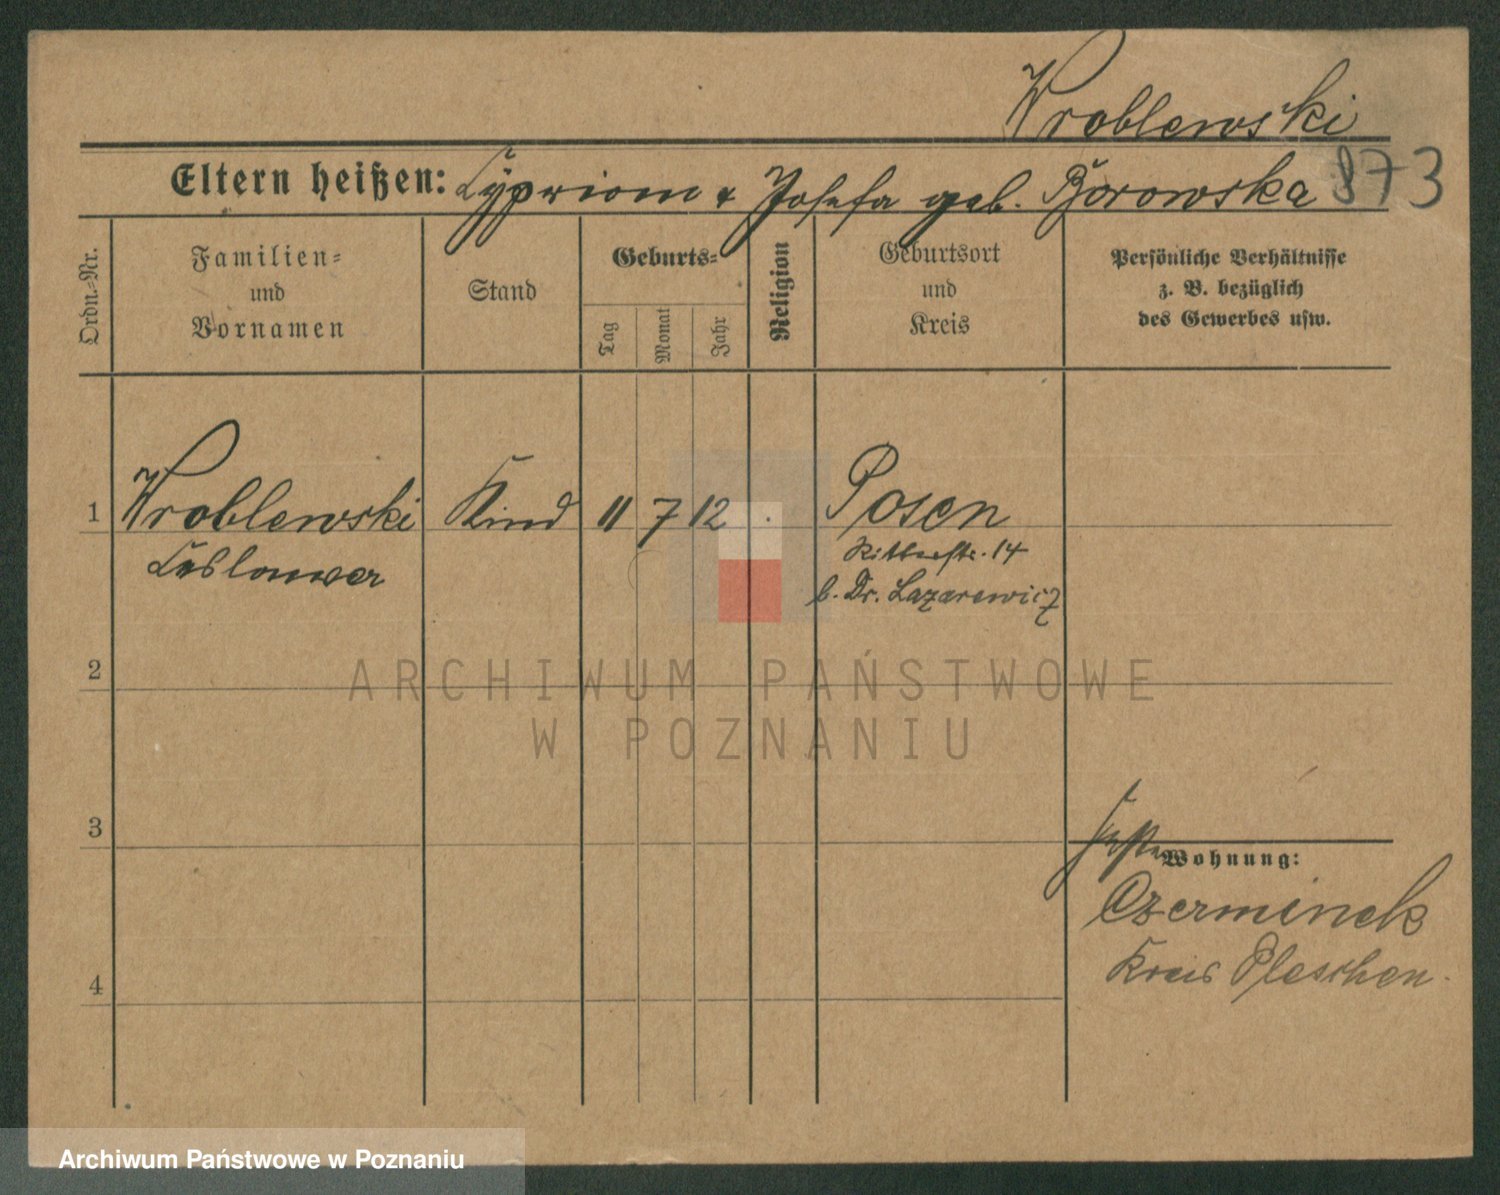 Wroblewski
873
Eltern heißen: Cyprian & Josefa geb. Borowska
Ordn.-Nr.
Familien-
und
Vornamen
Stand
Geburts-
Tag
Monat
Jahr
Religion
Geburtsort
und
Kreis
Persönliche Verhältnisse
z. B. bezüglich
des Gewerbes usw.
1 Wroblewski Kind 11 7 12 Posen
Ritterstr. 14
b. Dr. Lazarewicz
2
ARCHIWUM PAŃSTWOWE
W POZNANIU
3
Wohnung:
Czerminek
Kreis Pleschen.
4
Archiwum Państwowe w Poznaniu